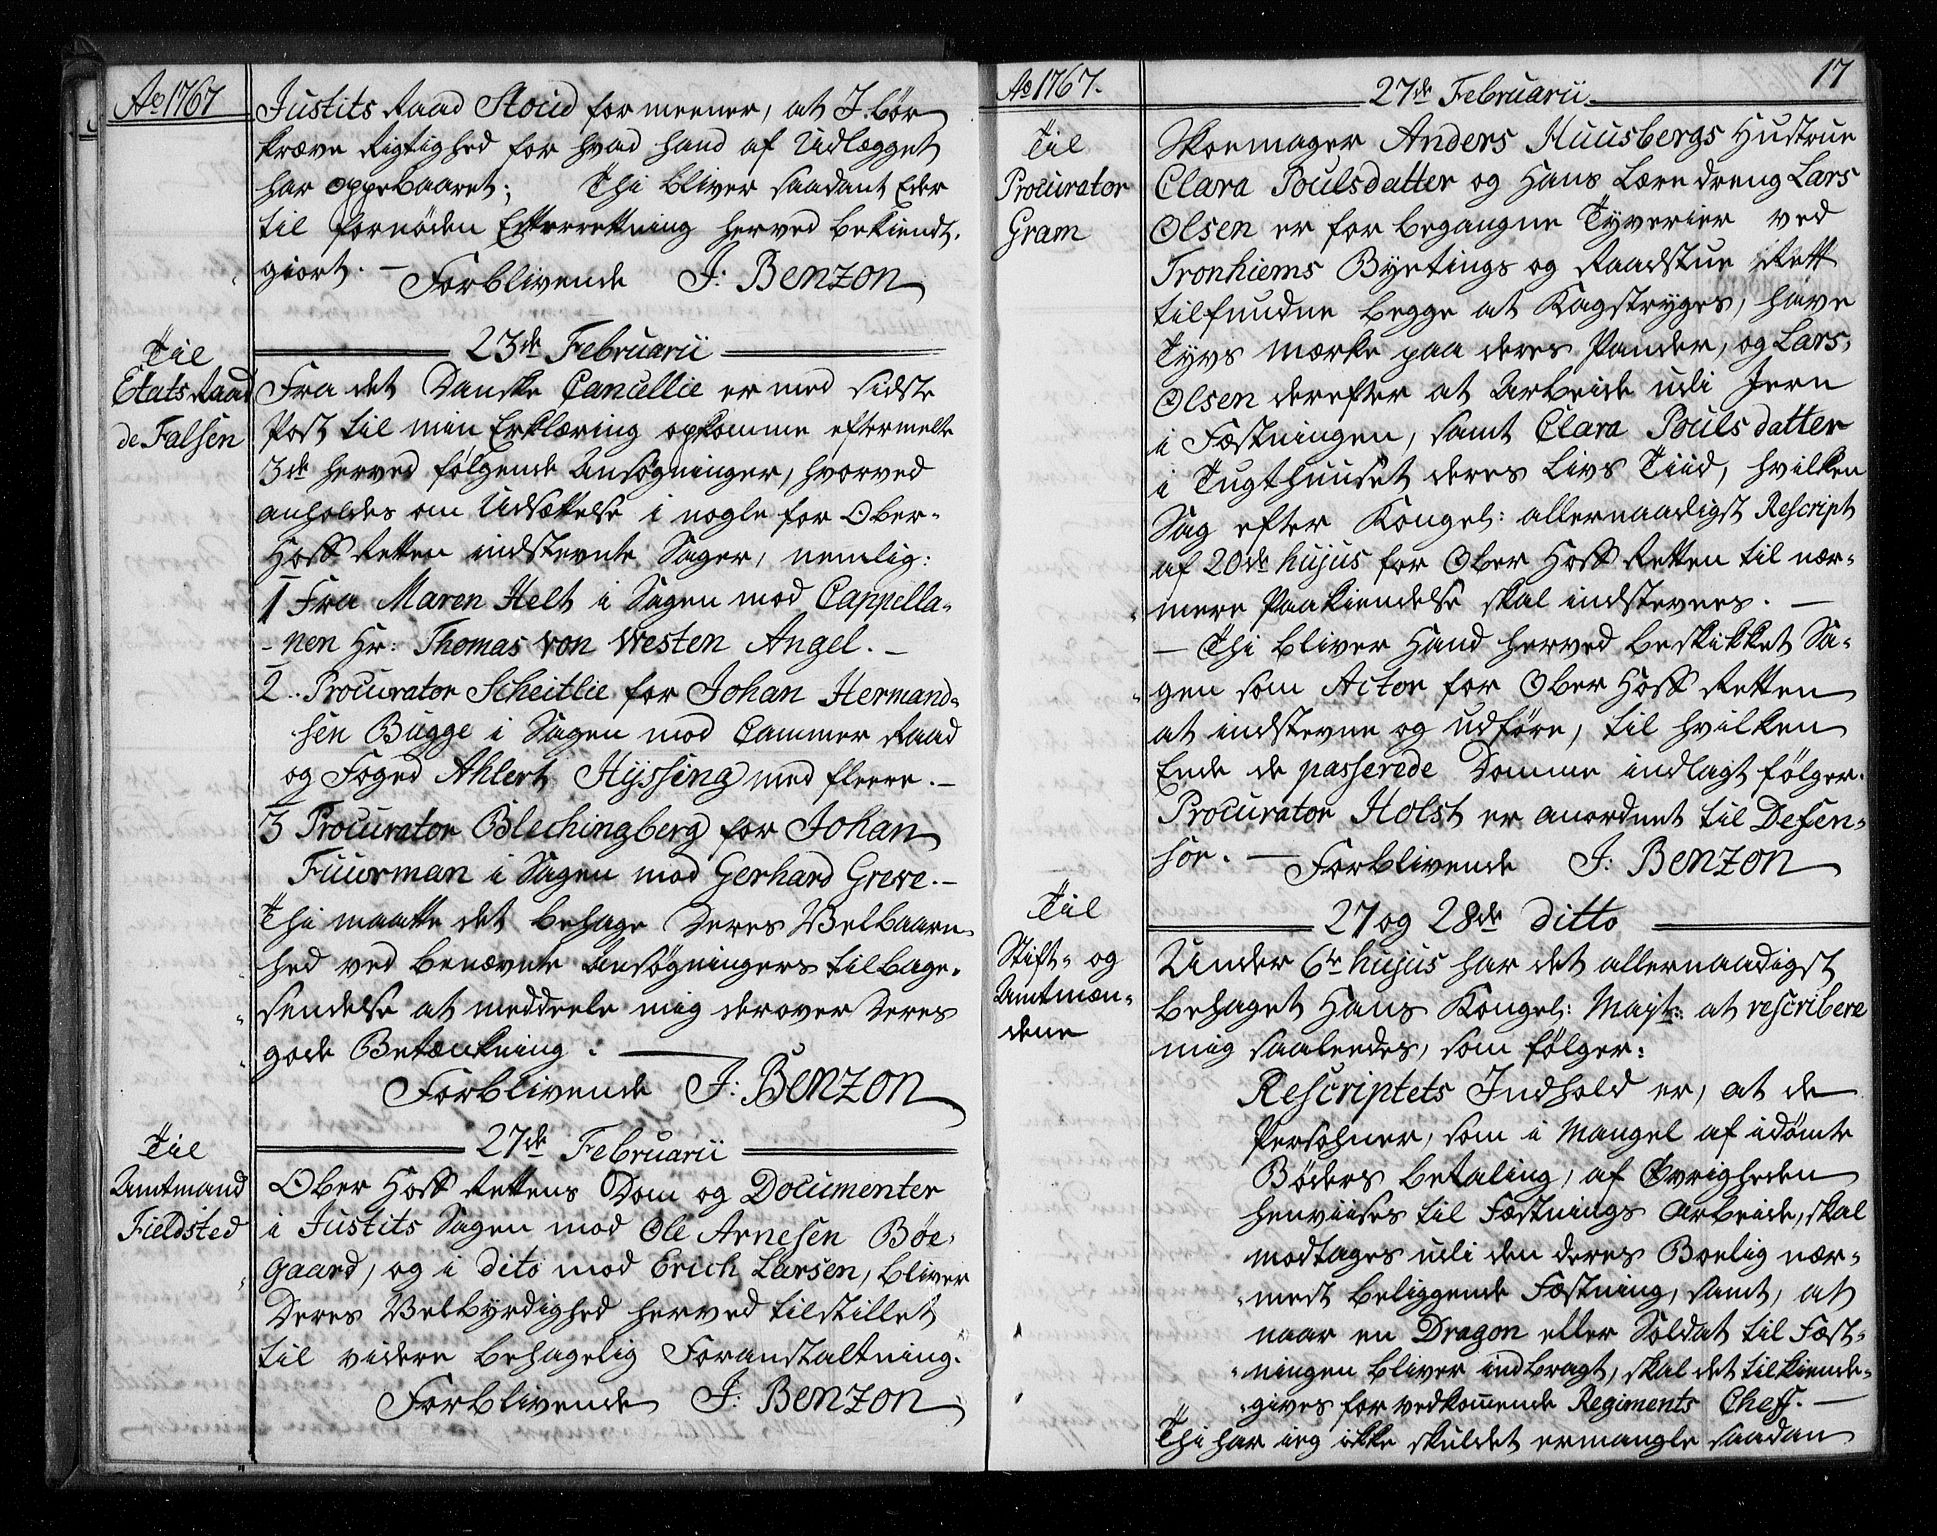 Ao 1767
Justits Raad Stoud formeener, at I bør
kræve Rigtighed for hvad hand af Udlægget
har oppebaaret; Thi bliver saadant Eder
til fornøden Efterretning herved bekiendt-
giort. – Forblivende J: Benzon
23de Februarii
Til
Etats Raad
de Falsen
Fra det Danske Cancellie er med sidste
Post til min Erklæring opkomne eftermelte
3de herved følgende Ansøgninger, hvorved
anholdes om Udsættelse i nogle for Ober-
Hoff Retten indstevnte Sager, nemlig:
1 Fra Maren Helt i Sagen mod Cappella-
-nen Hr: Thomas von Westen Angel. –
2.. Procurator Scheitlie for Johan Hermand-
sen Bugge i Sagen mod Cammer Raad
og Foged Ahlert Hyssing med fleere. –
3 Procurator Blechingberg for Johan
Fuurman i Sagen mod Gerhard Greve. –
Thi maatte det behage Deres Velbaarn-
hed ved benævnte Ansøgningers tilbage-
sendelse at meddeele mig derover Deres
gode Betænkning. –
Forblivende J: Benzon
27de Februarii
Til
Amtmand
Fieldsted
Ober Hoff Rettens Dom og Documenter
i Justits Sagen mod Ole Arnesen Böe-
gaard, og i dito mod Erich Larsen, bliver
Deres Velbyrdighed herved tilstillet
til videre behagelig Foranstaltning.
Forblivende J: Benzon
Ao 1767.
17
27de Februarii
Til
Procurator
Gram
Skoemager Anders Huusbergs Hustrue
Clara Poulsdatter og Hans Lære dreng Lars
Olsen er for begangne Tyverier ved
Tronhiems Byetings og Raadstue Rett
tilfundne begge at Kagstryges, have
Tyvs mærke paa deres Pander, og Lars
Olsen derefter at Arbeide udi Jern
i Fæstningen, samt Clara Pouls datter
i Tugthuuset deres Livs Tiid, hvilken
Sag efter Kongel: allernaadigst Rescript
af 20de hujus for Ober Hoff Retten til nær-
mere Paakiendelse skal indstevnes. –
– Thi bliver Hand herved beskikket Sa-
gen som Actor for Ober Hoff Retten
at indstevne og udføre, til hvilken
Ende de passerede Domme indlagt følger.
Procurator Holst er anordnet til Defen-
sor. – Forblivende J: Benzon
27 og 28de ditto
Til
Stift- og
Amtmæn-
dene
Under 6te hujus har det allernaadigst
behaget Hans Kongel: Majt: at rescribere
mig saaledes, som følger:
Rescriptets Indhold er, at de
Persohner, som i Mangel af idømte
Bøders betaling, af Øvrigheden
henviises til Fæstnings Arbeide, skal
modtages udi den deres Boelig nær-
-mest beliggende Fæstning, samt, at
naar en Dragon eller Soldat til Fæst-
-ningen bliver indbragt, skal det tilkiende-
-gives for vedkommende Regiments Cheff. –
Thi har ieg ikke skuldet ermangle saadan